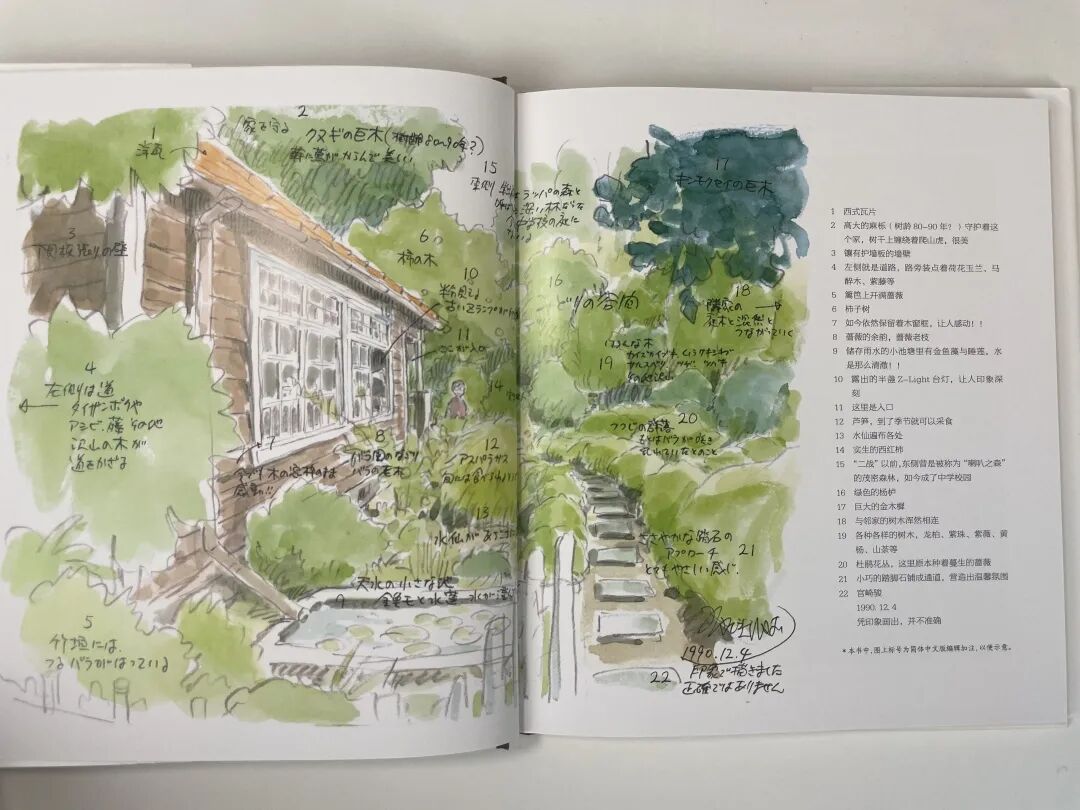 1
洋瓦
2
家を守る
クヌギの巨木(樹齢80~90年?)
幹に蔦がからんで美しい
3
下見板張りの壁
4
左側は道
タイザンボクや
アシビ、藤 その他
沢山の木が
道をかざる
5
竹垣には、
つるバラがはっている
6
柿の木
7
今だ木の窓枠のまま
感動!!
8
バラ園のなごり
バラの老木
天水の小さな池
9 金魚モと水蓮
10
11
ここが入口
12
アスパラガス
旬には食べられ
13
水仙が
14
15
東側
ラッパの森と
16
みどりの
17
キンモクセイの巨木
18
隣家の
庭木と渾然と
つながっていく
いろんな木
19 カイズカイブキ
サルスベリ ツゲ ツバキ
その他沢山
20
つつじの群落
もとはバラが咲き
乱れていたとのこと
ささやかな踏石の
アプローチ
とてもやさしい感じ.
21
1990.12.4
22 印象で描きました
正確ではありません
1 西式瓦片
2 高大的麻栎(树龄80-90年?)守护着这
个家,树干上缠绕着爬山虎,很美
3 镶有护墙板的墙壁
4 左侧就是道路,路旁装点着荷花玉兰、马
醉木、紫藤等
5 篱笆上开满蔷薇
6 柿子树
7 如今依然保留着木窗框,让人感动!!
8 蔷薇的余韵,蔷薇老枝
9 储存雨水的小池塘里有金鱼藻与睡莲,水
是那么清澈!!
10 露出的半盏Z-Light台灯,让人印象深
刻
11 这里是入口
12 芦笋,到了季节就可以采食
13 水仙遍布各处
14 实生的西红柿
15 “二战”以前,东侧曾是被称为“喇叭之森”
的茂密森林,如今成了中学校园
16 绿色的杨栌
17 巨大的金木樨
18 与邻家的树木浑然相连
19 各种各样的树木,龙柏、紫珠、紫薇、黄
杨、山茶等
20 杜鹃花丛,这里原本种着蔓生的蔷薇
21 小巧的踏脚石铺成通道,营造出温馨氛围
22 宫崎骏
1990.12.4
凭印象画出,并不准确
*本书中,图上标号为简体中文版编辑加注,以便示意。